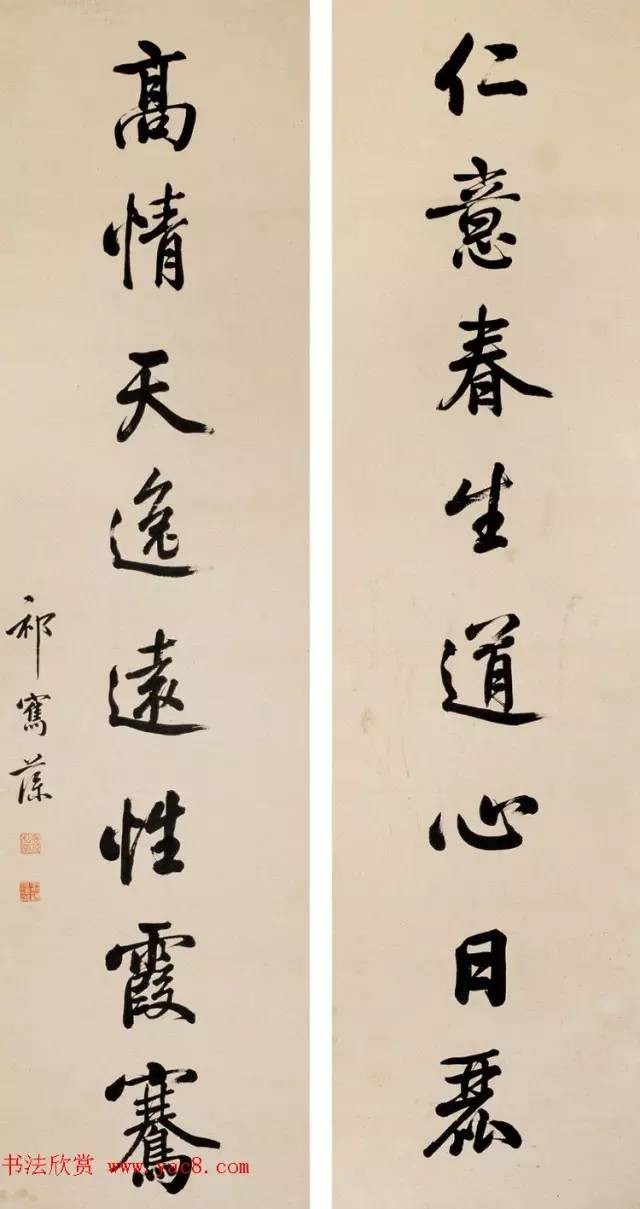 仁意春生道心日麗
高情天逸遠性霞騫
祁寯藻
书法欣赏 www.yac8.com